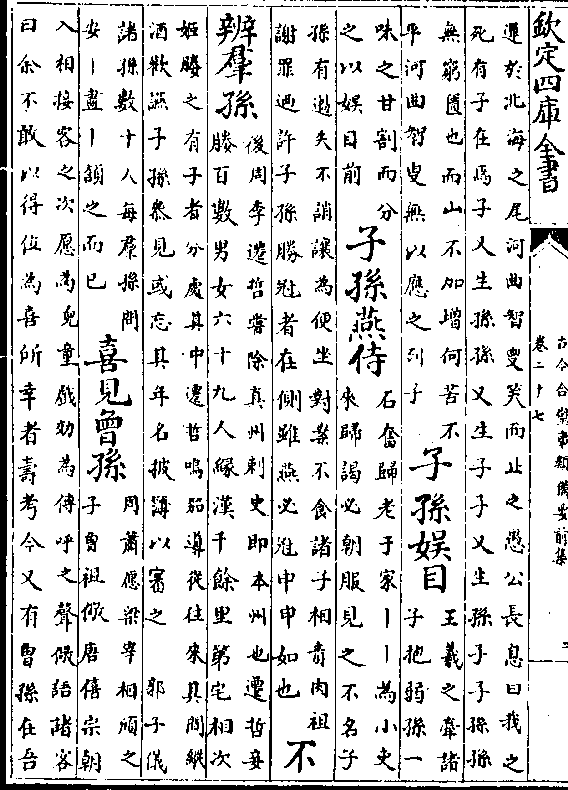 欽定四庫全書
古今合璧事類備要前集
卷二十七
遷於北海之尾河曲智叟笑而止之愚公長息曰我之
死有子在焉子又生孫孫又生子子又生孫子子孫孫
無窮匱也而山不加增何苦不
平河曲智叟無以應之列子
子孫娛目
王羲之牽諸
子抱弱孫一
味之甘割而分
之以娛目前
子孫燕侍
石奮歸老于家丨丨為小吏
來歸謁必朝服見之不名子
孫有過失不誚讓為便坐對案不食諸子相責肉袒
謝罪過許子孫勝冠者在側雖燕必冠申申如也
不
辨羣孫
後周李遷哲嘗除真州刺史即本州也遷哲妾
媵百數男女六十九人緣漢千餘里第宅相次
姬媵之有子者分處其中遷哲鳴笳導從往來其間縱
酒歡讌子孫叅見或忘其年名披簿以審之 郭子儀
諸孫數十人每羣孫問
安丨盡丨頷之而已
喜見曾孫
周蕭愿梁宰相頃之
子曾祖倣唐僖宗朝
入相接客之次愿為兒童戲効為傳呼之聲倣語諸客
曰余不敢以得位為喜所幸者壽考今又有曾孫在吾